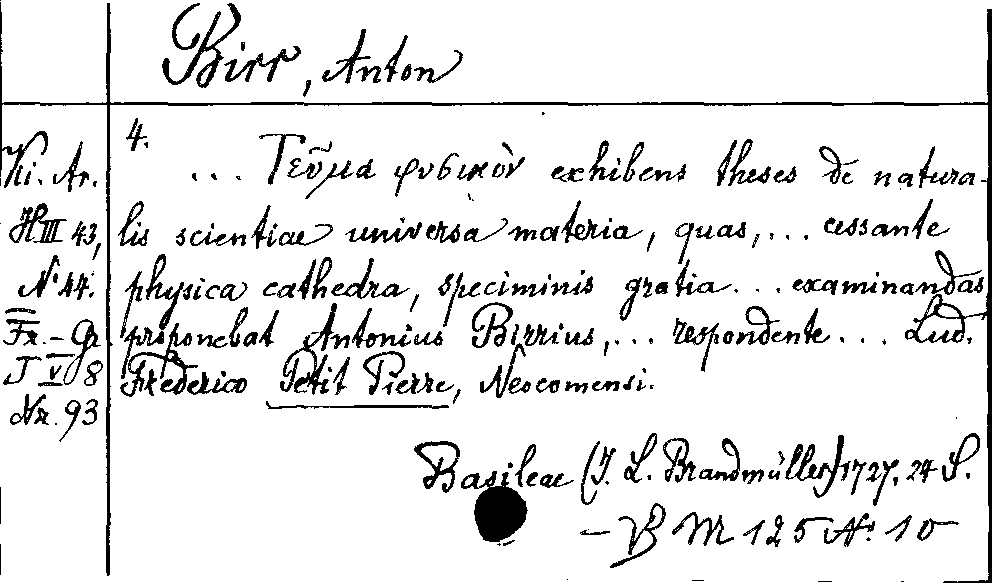 Birr, Anton
4.
... Γεῦμα φυσικὸν exhibens theses de natura-
lis scientiae universa materia, quas, ... cessante
physica cathedra, speciminis gratia ... examinandas
proponebat Antonius Birrius, ... respondente ... Lud.
Frederico Petit Pierre, Neocomensi.
Basileae (J. L. Brandmüller) 1727. 24 S.
– VB M 125 No 10
Ki. Ar.
H III 43,
No 44.
Fr. - Gr
J V 8
Nr. 93